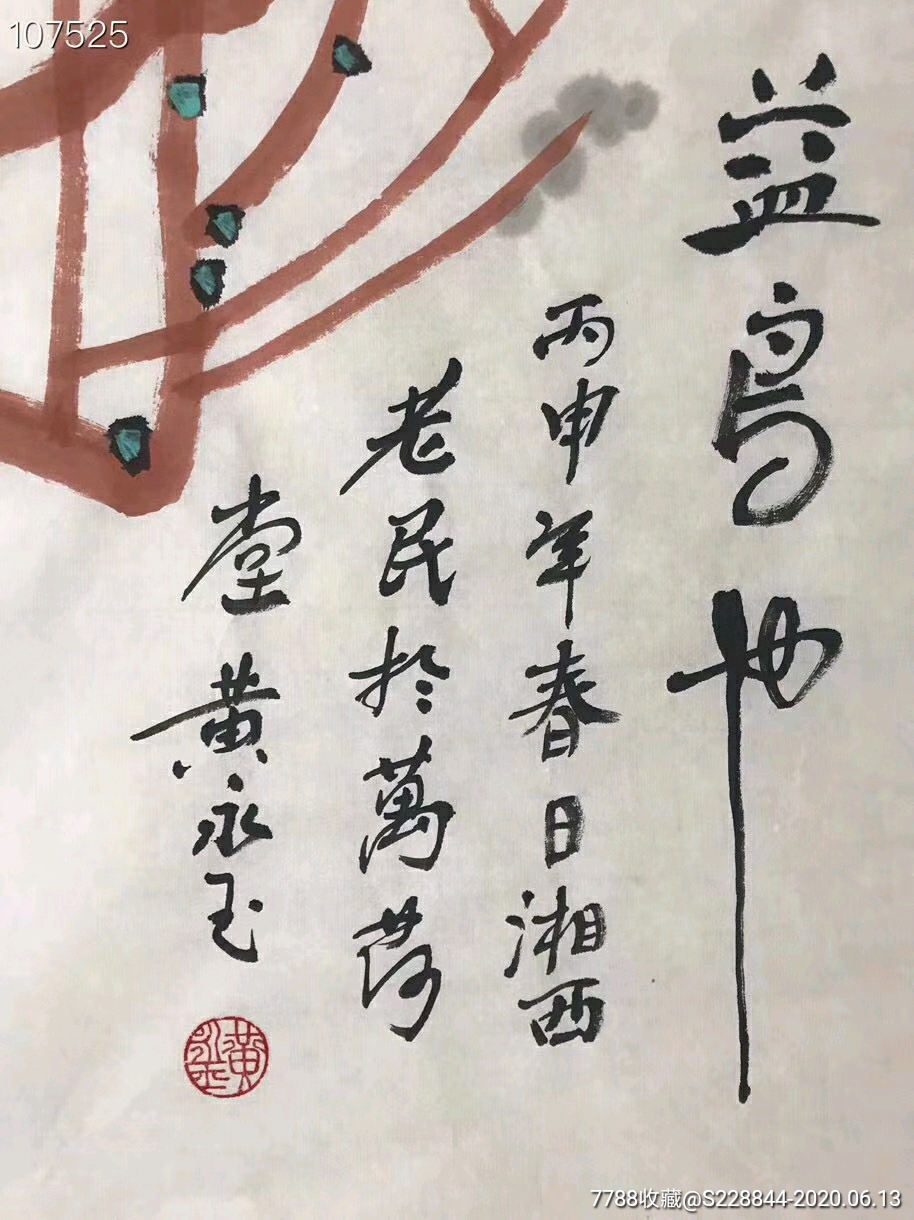 107525
益鳥也
丙申年春日湘西
老民於萬荷
堂黄永玉
黄永玉
7788收藏@S228844-2020.06.13